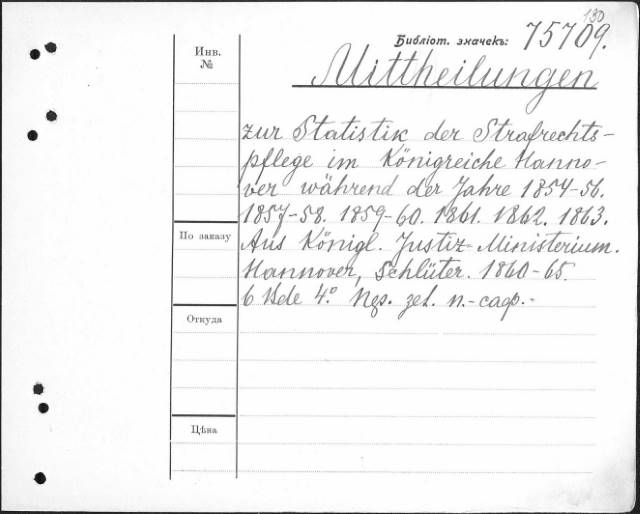 130
Библіот. значекъ: 75709.
Инв. №
Mittheilungen
zur Statistik der Strafrechts-
pflege im Königreiche Hanno-
ver während der Jahre 1854-56.
1857-58. 1859-60. 1861. 1862. 1863.
По заказу
Aus Königl. Justiz-Ministerium.
Hannover, Schlüter. 1860-65.
6 Bde 4.°
Откуда
Цѣна